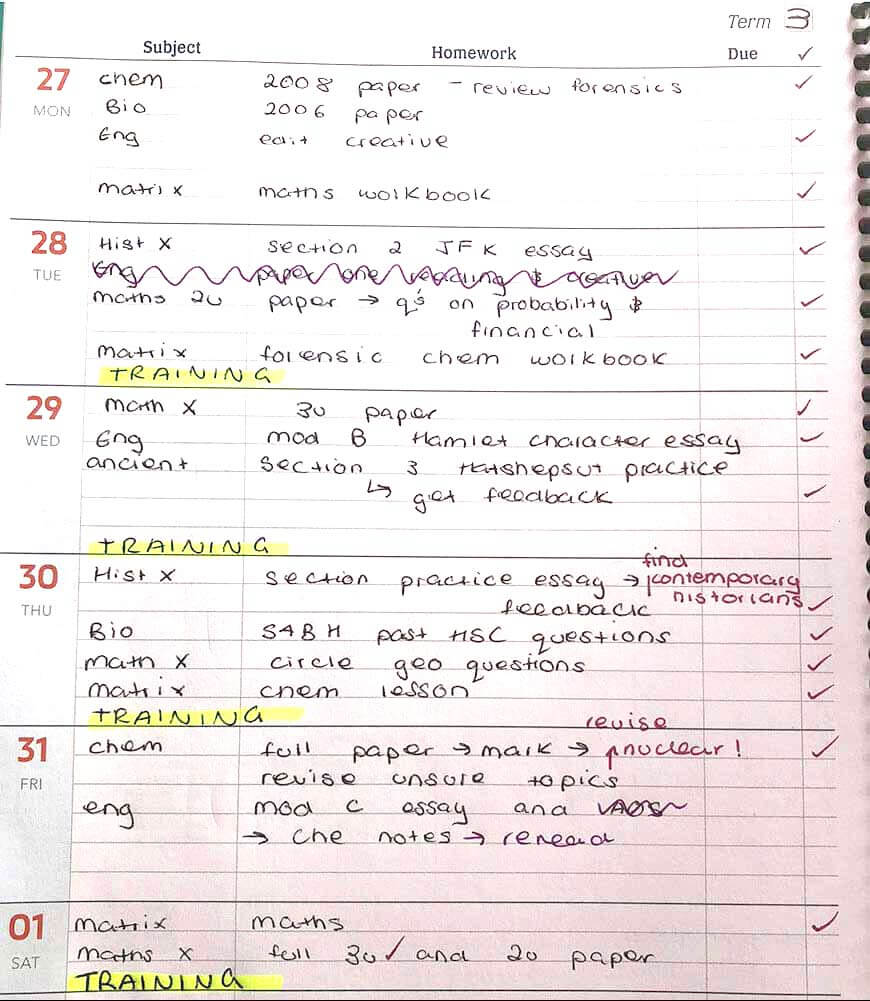 Term 3
Subject Homework Due ✓
27 MON
chem 2008 paper - review forensics ✓
Bio 2006 paper
Eng edit creative ✓
matrix maths workbook ✓
28 TUE
Hist X section 2 JFK essay ✓
Eng paper one reading & creative
maths 2u paper → q's on probability & ✓
financial
matrix forensic chem workbook ✓
TRAINING
29 WED
math X 3u paper ✓
Eng mod B Hamlet character essay ✓
ancient section 3 Hatshepsut practice
↳ get feedback ✓
TRAINING
30 THU
find
Hist X section practice essay → contemporary
feedback historians ✓
Bio S4BH past HSC questions ✓
math X circle geo questions ✓
matrix chem lesson ✓
TRAINING
31 FRI
revise
chem full paper → mark → nuclear! ✓
revise unsure topics
eng mod c essay and AOS
→ che notes → reread
01 SAT
matrix maths ✓
maths X full 3u ✓ and 2u paper
TRAINING